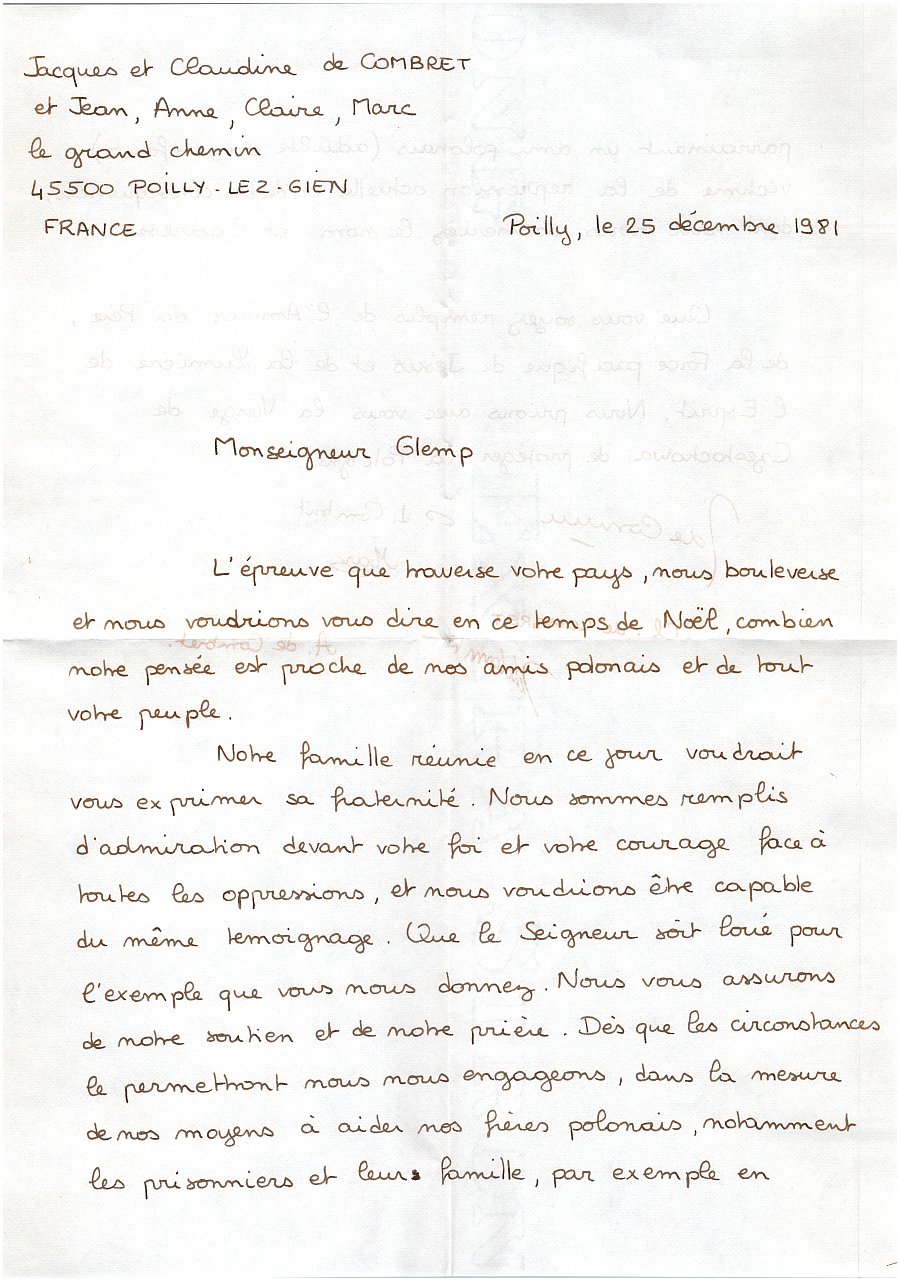 Jacques et Claudine de COMBRET
et Jean, Anne, Claire, Marc
le grand chemin
45500 POILLY-LEZ-GIEN
FRANCE
Poilly, le 25 décembre 1981
Monseigneur Glemp
L'épreuve que traverse votre pays, nous bouleverse
et nous voudrions vous dire en ce temps de Noël, combien
notre pensée est proche de nos amis polonais et de tout
votre peuple.
Notre famille réunie en ce jour voudrait
vous exprimer sa fraternité. Nous sommes remplis
d'admiration devant votre foi et votre courage face à
toutes les oppressions, et nous voudrions être capable
du même temoignage. Que le Seigneur soit loué pour
l'exemple que vous nous donnez. Nous vous assurons
de notre soutien et de notre prière. Dès que les circonstances
le permettront nous nous engageons, dans la mesure
de nos moyens à aider nos frères polonais, notamment
les prisonniers et leurs famille, par exemple en